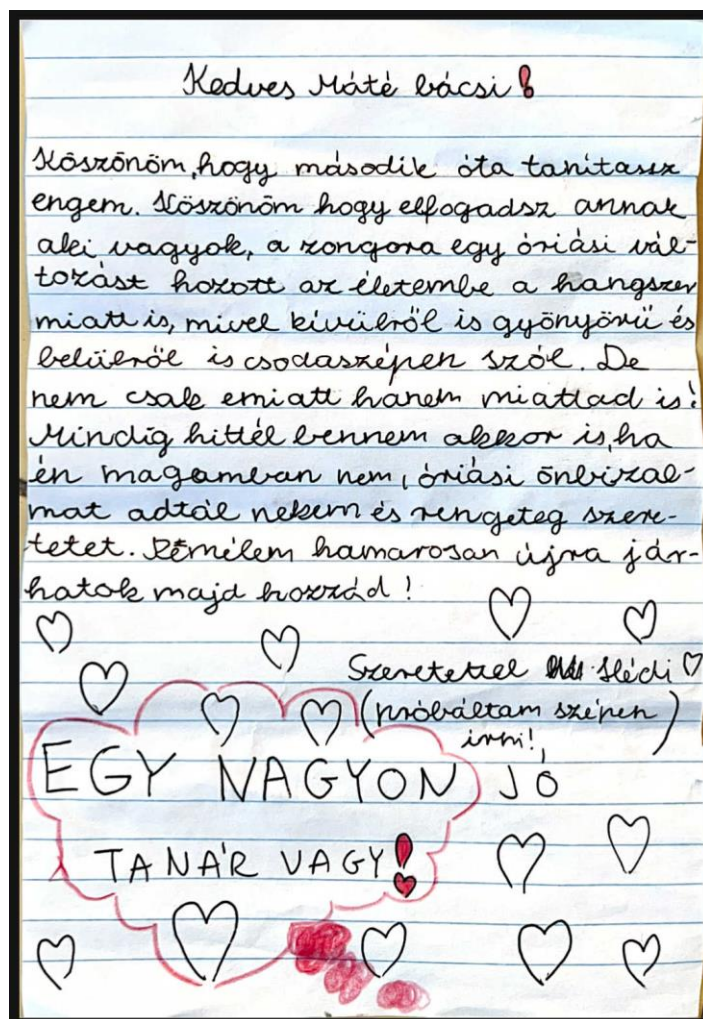 Kedves Máté bácsi!
Köszönöm, hogy második óta tanítassz
engem. Köszönöm hogy elfogadsz annak
aki vagyok, a zongora egy óriási vál-
tozást hozott az életembe a hangszer
miatt is, mivel kívülről is gyönyörű és
belülről is csodaszépen szól. De
nem csak emiatt hanem miattad is!
Mindig hittél bennem akkor is, ha
én magamban nem, óriási önbizal-
mat adtál nekem és rengeteg szere-
tetet. Rémélem hamarosan újra jár-
hatok majd hozzád!
Szeretettel Hédi
(próbáltam szépen
írni!)
EGY NAGYON JÓ
TANÁR VAGY!